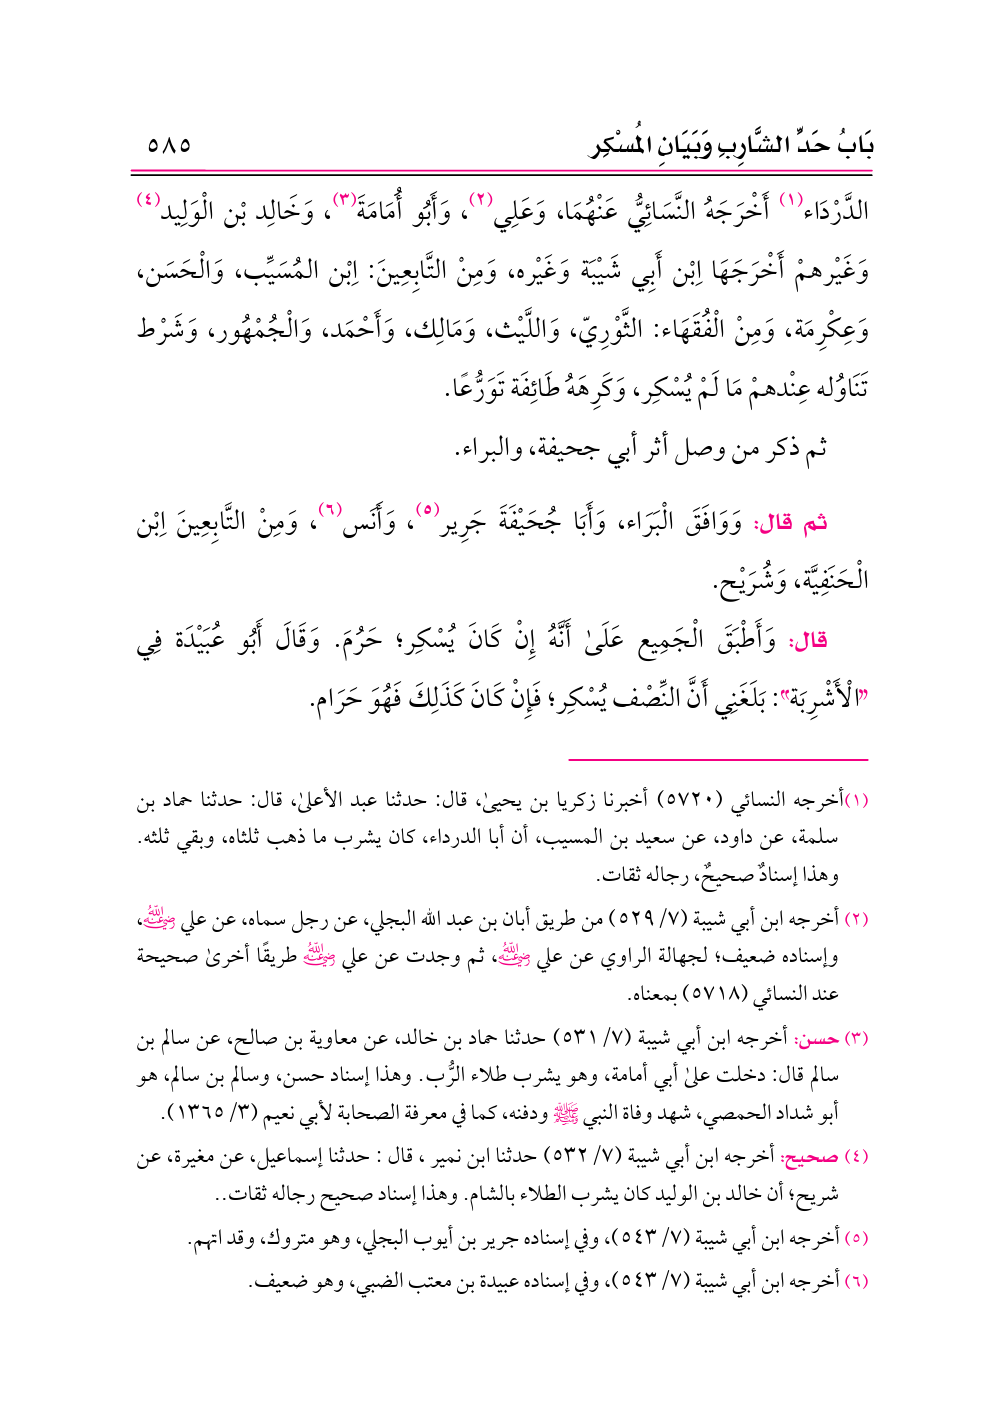 بَابُ حَدِّ الشَّارِبِ وَبَيَانِ الْمُسْكِرِ ٥٨٥
الدَّرْدَاء(١) أَخْرَجَهُ النَّسَائِيُّ عَنْهُمَا، وَعَلِي(٢)، وَأَبُو أُمَامَةَ(٣)، وَخَالِد بْن الْوَلِيد(٤)
وَغَيْرهمْ أَخْرَجَهَا اِبْن أَبِي شَيْبَة وَغَيْره، وَمِنْ التَّابِعِينَ: اِبْن المُسَيِّب، وَالْحَسَن،
وَعِكْرِمَة، وَمِنْ الْفُقَهَاء: الثَّوْرِيّ، وَاللَّيْث، وَمَالِك، وَأَحْمَد، وَالْجُمْهُور، وَشَرْط
تَنَاوُله عِنْدهمْ مَا لَمْ يُسْكِر، وَكَرِهَهُ طَائِفَة تَوَرُّعًا.
ثم ذكر من وصل أثر أبي جحيفة، والبراء.
ثم قال: وَوَافَقَ الْبَرَاء، وَأَبَا جُحَيْفَةَ جَرِير(٥)، وَأَنَس(٦)، وَمِنْ التَّابِعِينَ اِبْن
الْحَنَفِيَّة، وَشُرَيْح.
قال: وَأَطْبَقَ الْجَمِيع عَلَىٰ أَنَّهُ إِنْ كَانَ يُسْكِر؛ حَرُمَ. وَقَالَ أَبُو عُبَيْدَة فِي
"الْأَشْرِبَة": بَلَغَنِي أَنَّ النِّصْف يُسْكِر؛ فَإِنْ كَانَ كَذَلِكَ فَهُوَ حَرَام.
(١) أخرجه النسائي (٥٧٢٠) أخبرنا زكريا بن يحيىٰ، قال: حدثنا عبد الأعلىٰ، قال: حدثنا حماد بن
سلمة، عن داود، عن سعيد بن المسيب، أن أبا الدرداء، كان يشرب ما ذهب ثلثاه، وبقي ثلثه.
وهذا إسنادٌ صحيحٌ، رجاله ثقات.
(٢) أخرجه ابن أبي شيبة (٧/ ٥٢٩) من طريق أبان بن عبد الله البجلي، عن رجل سماه، عن علي رضي الله عنه،
وإسناده ضعيف؛ لجهالة الراوي عن علي رضي الله عنه، ثم وجدت عن علي رضي الله عنه طريقًا أخرىٰ صحيحة
عند النسائي (٥٧١٨) بمعناه.
(٣) حسن: أخرجه ابن أبي شيبة (٧/ ٥٣١) حدثنا حماد بن خالد، عن معاوية بن صالح، عن سالم بن
سالم قال: دخلت علىٰ أبي أمامة، وهو يشرب طلاء الرُّب. وهذا إسناد حسن، وسالم بن سالم، هو
أبو شداد الحمصي، شهد وفاة النبي ﷺ ودفنه، كما في معرفة الصحابة لأبي نعيم (٣/ ١٣٦٥).
(٤) صحيح: أخرجه ابن أبي شيبة (٧/ ٥٣٢) حدثنا ابن نمير ، قال : حدثنا إسماعيل، عن مغيرة، عن
شريح؛ أن خالد بن الوليد كان يشرب الطلاء بالشام. وهذا إسناد صحيح رجاله ثقات..
(٥) أخرجه ابن أبي شيبة (٧/ ٥٤٣)، وفي إسناده جرير بن أيوب البجلي، وهو متروك، وقد اتهم.
(٦) أخرجه ابن أبي شيبة (٧/ ٥٤٣)، وفي إسناده عبيدة بن معتب الضبي، وهو ضعيف.